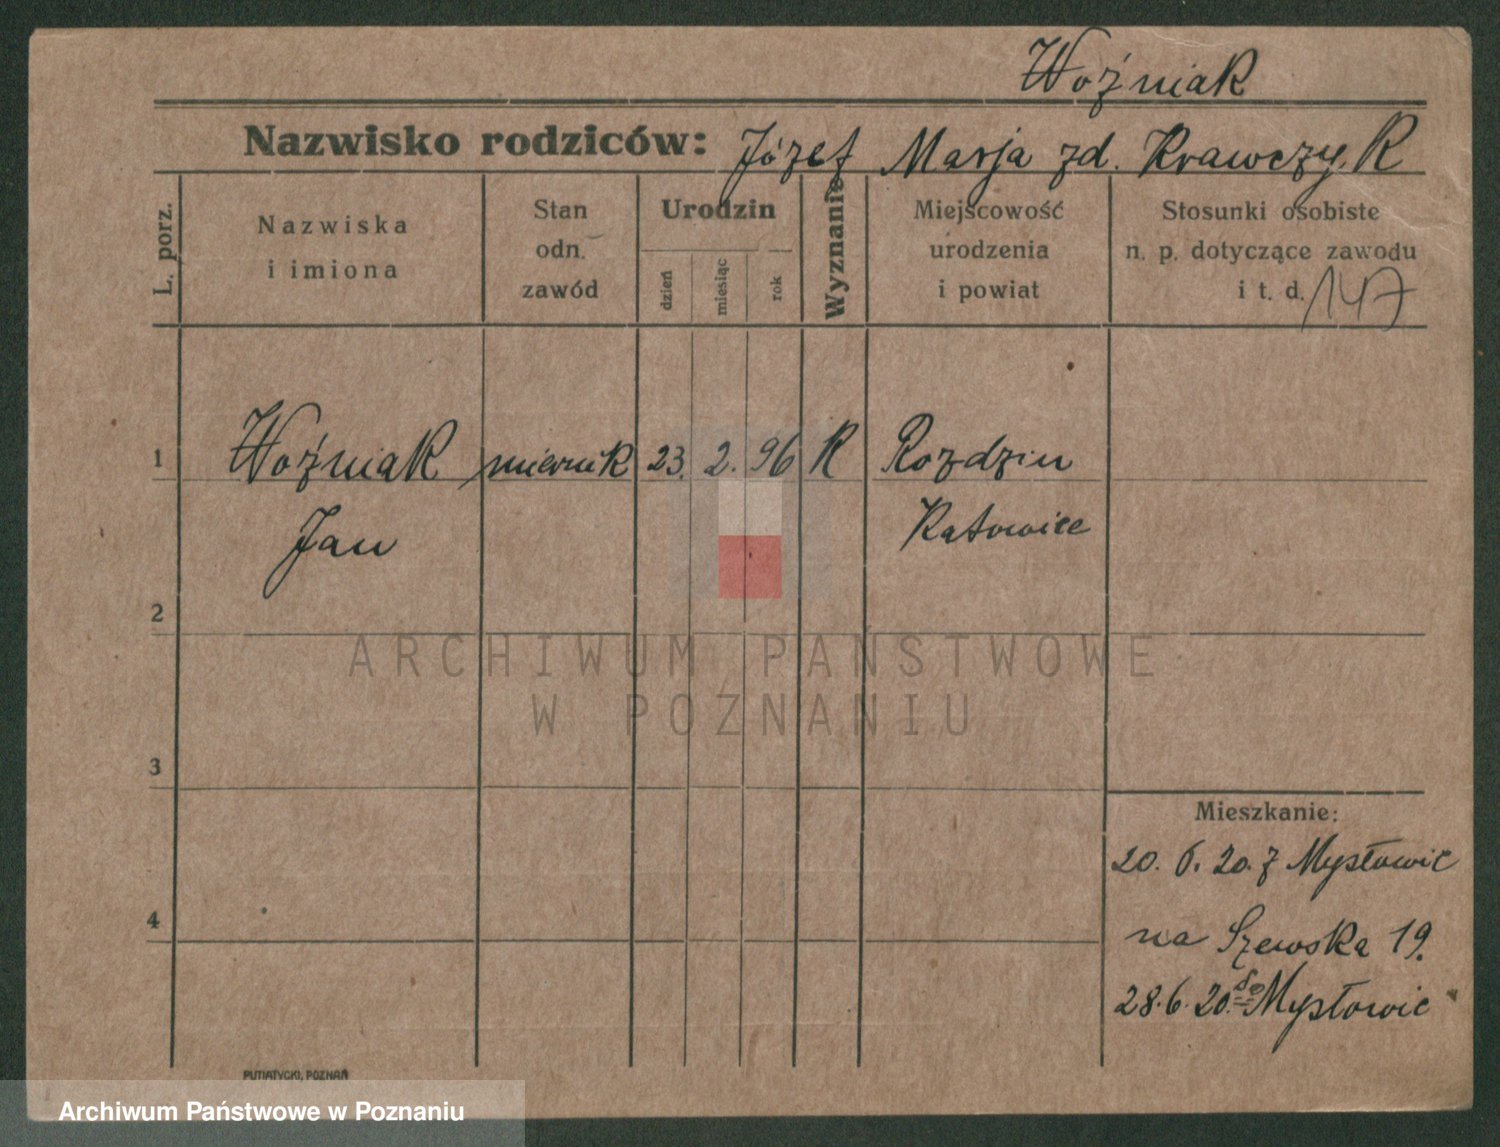 Woźniak
Nazwisko rodziców: Józef Marja zd. Krawczyk
L. porz.
Nazwiska
i imiona
Stan
odn.
zawód
Urodzin
dzień
miesiąc
rok
Wyznanie
Miejscowość
urodzenia
i powiat
Stosunki osobiste
n. p. dotyczące zawodu
i t. d.
147
1 Woźniak miernik 23. 2. 96 K Rozdzin
Jan Katowice
2
ARCHIWUM PAŃSTWOWE
W POZNANIU
3
Mieszkanie:
20. 6. 20. z Mysłowic
4
na Szewska 19.
28.6.20. do Mysłowic
PUTIATYCKI, POZNAŃ
Archiwum Państwowe w Poznaniu